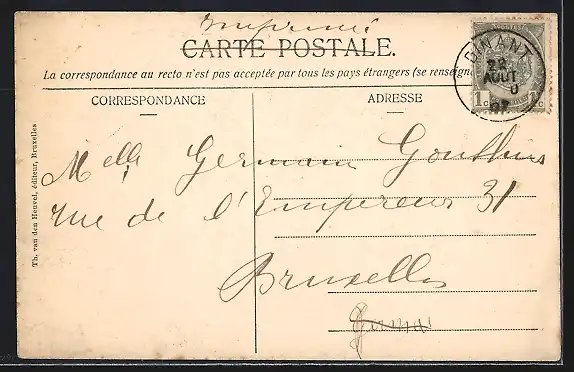 Imprimé
CARTE POSTALE.
La correspondance au recto n'est pas acceptée par tous les pays étrangers (se renseign
CORRESPONDANCE
ADRESSE
DINANT
22
AOUT
07
1c
1c
Melle Germain
rue de l'Empereur 31
Bruxelles
Th. van den Heuvel, éditeur, Bruxelles